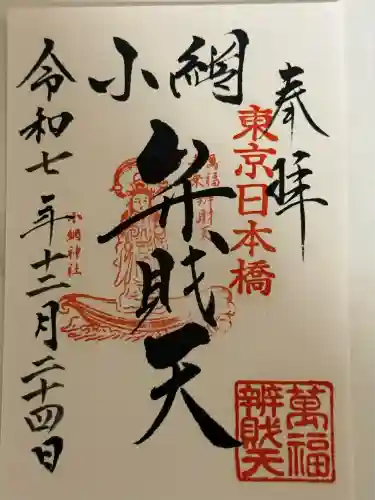 奉拝
東京日本橋
小網
弁財天
萬福
舟乗弁財天
小網神社
令和七年十二月二十四日
萬福
辨財天